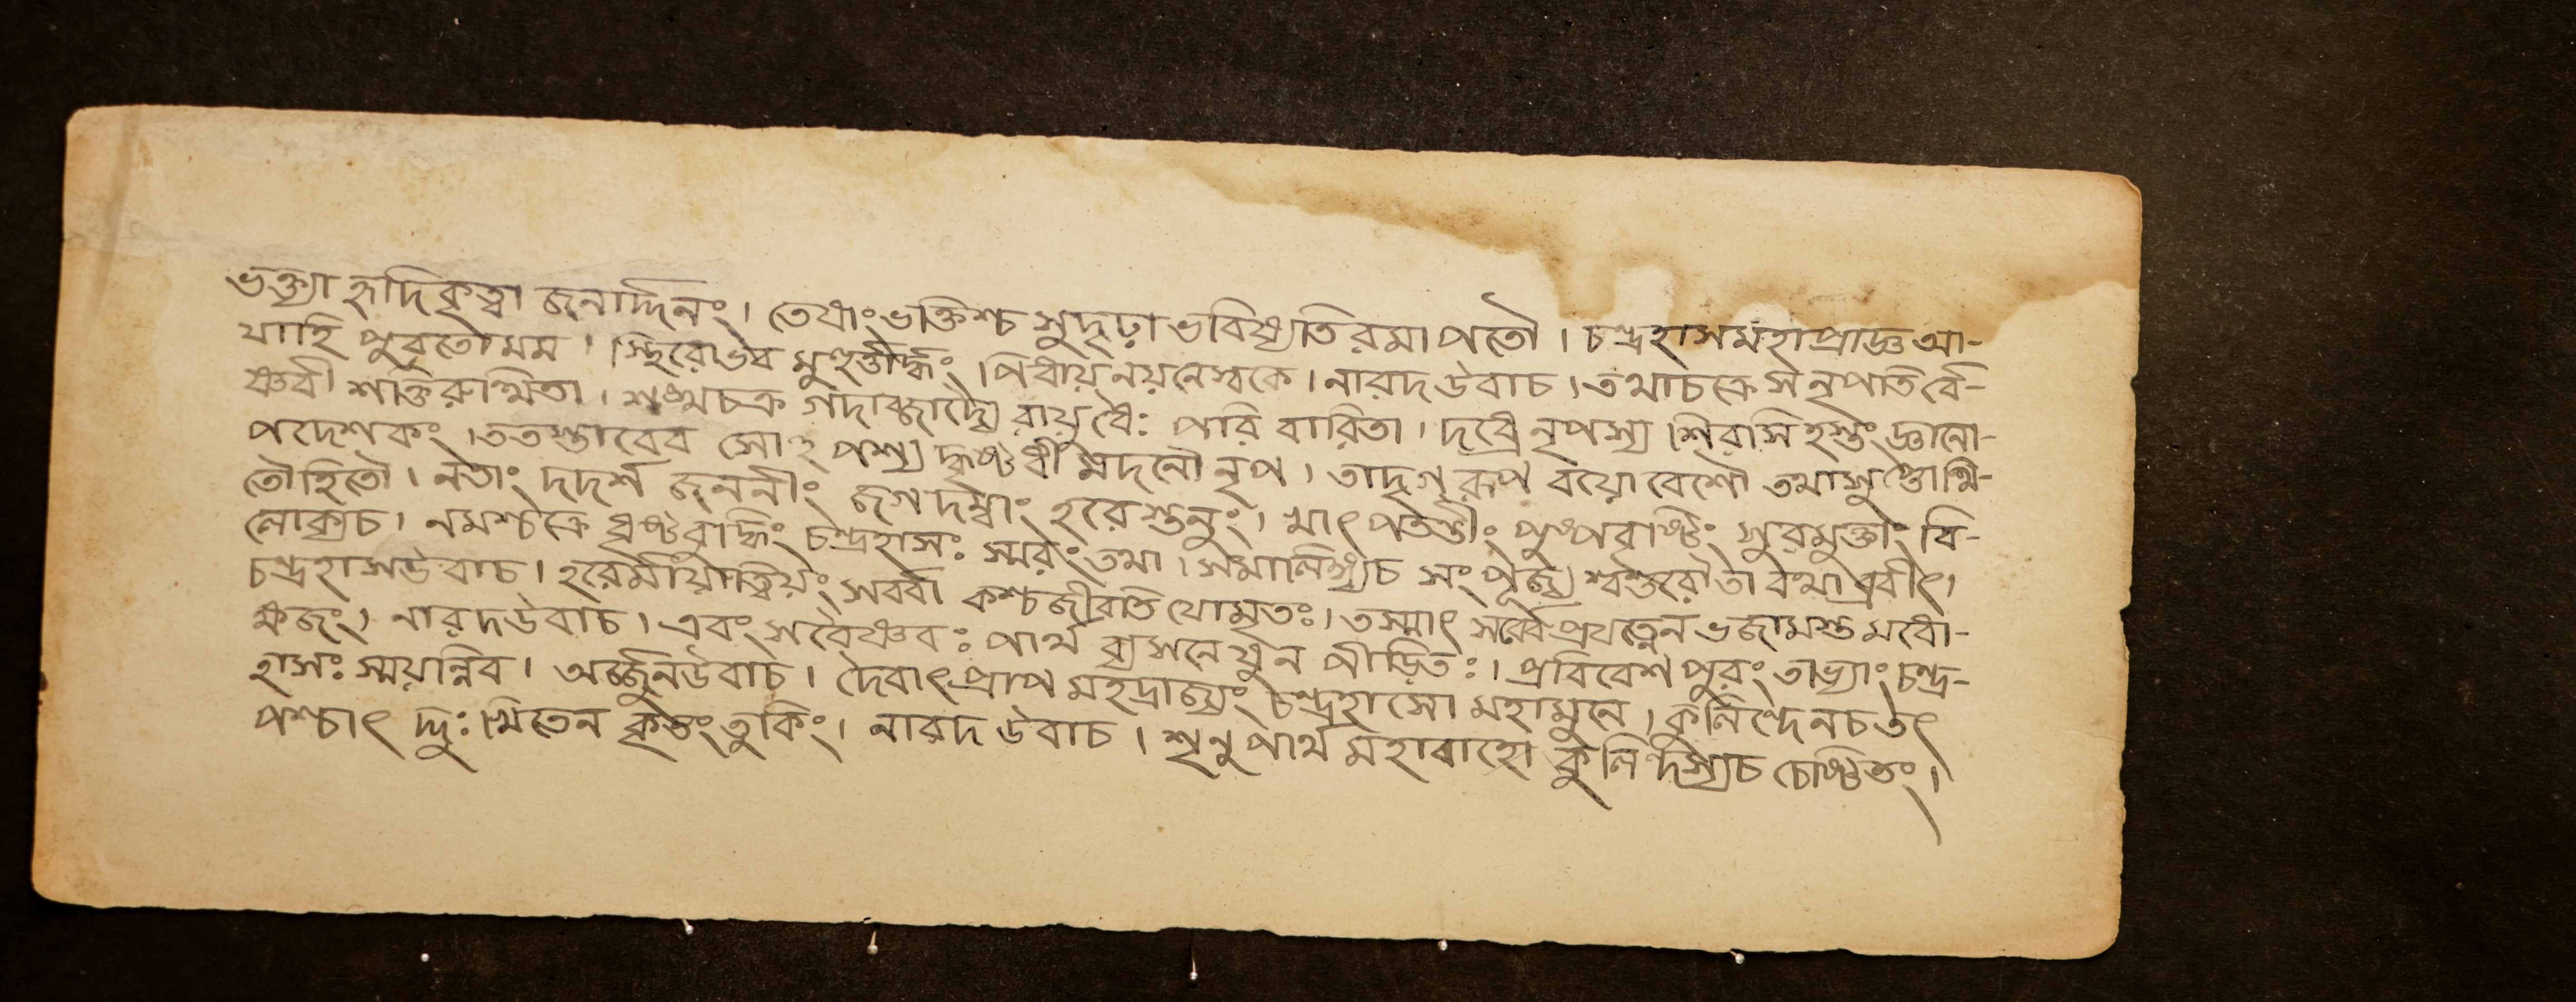 ভক্ত্যা হৃদিকৃত্বা জনার্দ্দনং। তেষাংভক্তিশ্চ সুদৃঢ়া ভবিষ্যতি রমাপতৌ। চন্দ্রহাসমহাপ্রাজ্ঞ আ-
যাহি পুরতোমম। স্থিরোভব মুহূর্ত্তার্দ্ধং পিধায়নয়নেস্বকে। নারদউবাচ। তথাচক্রে সনৃপতির্বৈ-
ষ্ণবী শক্তিরুত্থিতা। শঙ্খচক্র গদাব্জাদ্যৈ রায়ুধৈঃ পরি বারিতা। দধ্রে নৃপস্য শিরসি হস্তং জ্ঞানো-
পদেশকং। ততস্তাবেব সোঽপশ্য দ্ধৃষ্টধী মদনৌ নৃপ। তাদৃগ্‌রূপ বয়োবেশৌ তথাসুপ্তোত্থি-
তৌহিতৌ। নতাং দদর্শ জননীং জগদম্বাং হরেস্তনুং। খাৎ পতন্তীং পুষ্পবৃষ্টিং সুরমুক্তাং বি-
লোক্যচ। নমশ্চক্রে ধৃষ্টবুদ্ধিং চন্দ্রহাসঃ স্মরং তথা। সমালিঙ্গ্যচ সংপূজ্য শ্বশুরৌতা বথাব্রবীৎ।
চন্দ্রহাসউবাচ। হরের্মায়াত্বিয়ং সর্ব্বা কশ্চজীবতি যোমৃতঃ। তস্মাৎ সর্ব্বপ্রযত্নেন ভজামস্ত মধো-
ক্ষজং। নারদউবাচ। এবং সবৈষ্ণবঃ পার্থ ব্যসনেষুন পীড়িতঃ। প্রবিবেশ পুরং তাভ্যাং চন্দ্র-
হাসঃ স্ময়ন্নিব। অর্জ্জুনউবাচ। দৈবাৎপ্রাপ মহদ্রাজ্যং চন্দ্রহাসো মহামুনে। কুলিন্দেনচতৎ
পশ্চাৎ দ্দুঃখিতেন কৃতং তুকিং। নারদ উবাচ। শৃনুপার্থ মহাবাহো কুলিন্দস্যচ চেষ্টিতং।